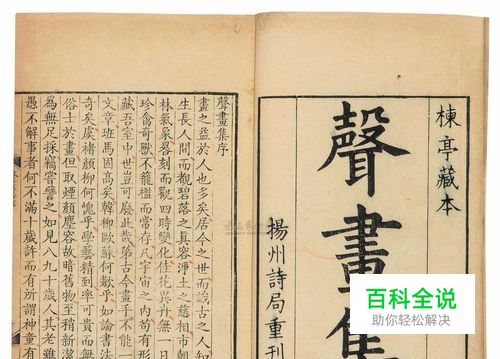 楝亭藏本
聲畫集
揚州詩局重刊
聲畫集序
畫之益於人也多矣居今之世而識古之人
生長人間而觀碧落之真容淨土之慈相市朝
林氣象晷刻而觀四時變化佳花異卉無一日
珍禽奇獸不籠檻而常存尺宇宙之内苟有形
藏吾室中世豈可廢此哉第古今畫手不
文章班馬固高矣韓柳歐蘇何歉乎如論書法
奇矣虞褚顏柳何愧乎學藝精到率可貴而無
俗士於畫但取煙顏塵容故暗舊物至稍新蕩
為無足採竊嘗譬之如見八九十歲人其老雖
愚不解事者何不滿十歲許而有所謂神童有
百科全说
助你轻松解决